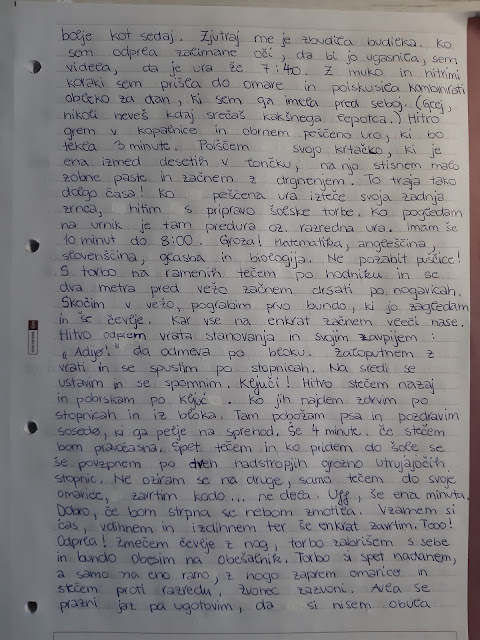 bolje kot sedaj. Zjutraj me je zbudila budilka. Ko
sem odprla zaspane oči, da bi jo ugasnila, sem
videla, da je ura že 7:40. Z muko in hitrimi
koraki sem prišla do omare in poiskusila kombinirati
obleko za dan, ki sem ga imela pred seboj. (Glej,
nikoli neveš kdaj srečaš kakšnega lepotca.) Hitro
grem v kopalnice in obrnem peščeno uro, ki bo
tekla 3 minute. Poiščem svojo krtačko, ki je
ena izmed desetih v lončku, na njo stisnem malo
zobne paste in začnem z drgnenjem. To traja tako
dolgo časa! Ko peščena ura izteče svoja zadnja
zrnca, hitim s pripravo šolske torbe. Ko pogledam
na urnik je tam predura oz. razredna ura. Imam še
10 minut do 8:00. Groza! Matematika, angleščina,
slovenščina, glasba in biologija. Ne pozabit puščice!
S torbo na ramenih tečem po hodniku in se
dva metra pred vežo začnem drsati po nogavicah.
Skočim v vežo, pograbim prvo bundo, ki jo zagledam
in še čevlje. Kar vse na enkrat začnem vleči nase.
Hitro odprem vrata stanovanja in svojim zavpijem:
"Adijo!" da odmeva po bloku. Zaloputnem z
vrati in se spustim po stopnicah. Na sredi se
ustavim in se spomnim. Ključi! Hitro stečem nazaj
in pobrskam po ključ... Ko jih najdem zdrvim po
stopnicah in iz bloka. Tam pobožam psa in pozdravim
sosedo, ki ga pelje na sprehod. Še 4 minute. Če stečem
bom pravočasna. Spet tečem in ko pridem do šole se
še povzpnem po dveh nadstropjih grozno utrujajočih
stopnic. Ne oziram se na druge, samo tečem do svoje
omarice, zavrtim kodo... ne dela. Uff, še ena minuta.
Dobro, če bom strpna se nebom zmotila. Vzamem si
čas, vdihnem in izdihnem ter še enkrat zavrtim. Tooo!
Odprla! Zmečem čevlje z nog, torbo zalorišem s sebe
in bundo obesim na obešalnik. Torbo si spet nadanem,
a samo na eno ramo, z nogo zaprem omarico in
stečem proti razredu. Zvonec zazvoni. Avla se
prazni jaz pa ugotovim, da si nisem obula